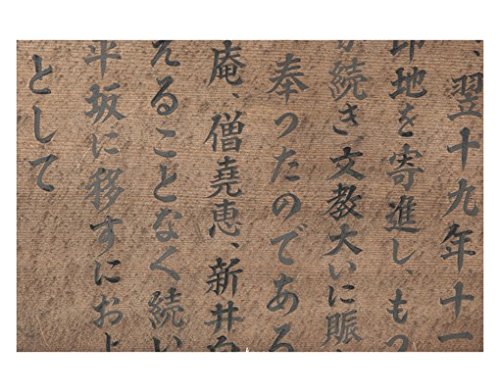 、翌十九年十一
印地を寄進し、もつ
続き文教大いに賑
奉つたのである
庵、僧堯恵、新井白
えることなく続い
平坂に移すにおよ
として